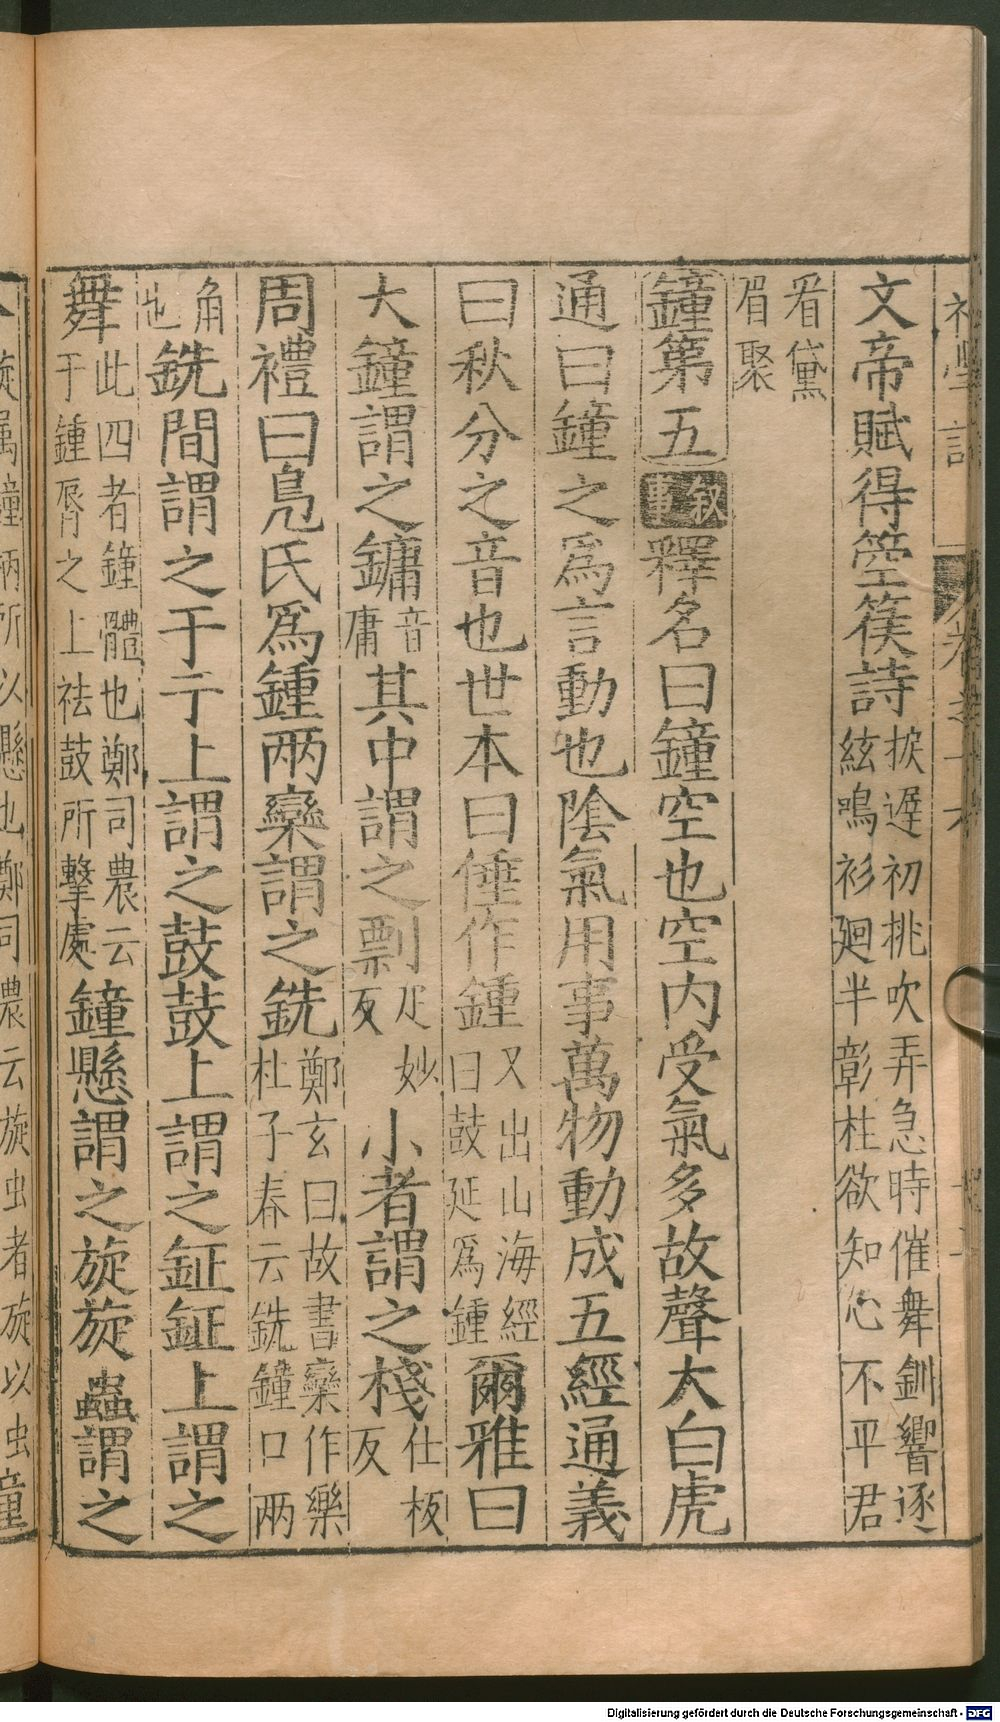 文帝賦得箜篌詩捩遲初挑吹弄急時催舞釧響逐絃鳴衫廻半彰柱欲知心不平君
看黛眉聚
鐘第五叙事釋名曰鐘空也空內受氣多故聲大白虎
通曰鐘之爲言動也陰氣用事萬物動成五經通義
曰秋分之音也世本曰倕作鍾又出山海經曰鼓延爲鍾爾雅曰
大鐘謂之鏞音庸其中謂之剽疋妙反小者謂之棧仕板反
周禮曰鳧氏爲鍾兩欒謂之銑鄭玄曰故書欒作樂杜子春云銑鐘口兩
角也銑間謂之于于上謂之鼓鼓上謂之鉦鉦上謂之
舞此四者鐘體也鄭司農云于鍾脣之上祛鼓所擊處鐘懸謂之旋旋蟲謂之
旋屬鐘柄所以懸也鄭司農云旋虫者旋以虫
Digitalisierung gefördert durch die Deutsche Forschungsgemeinschaft - DFG